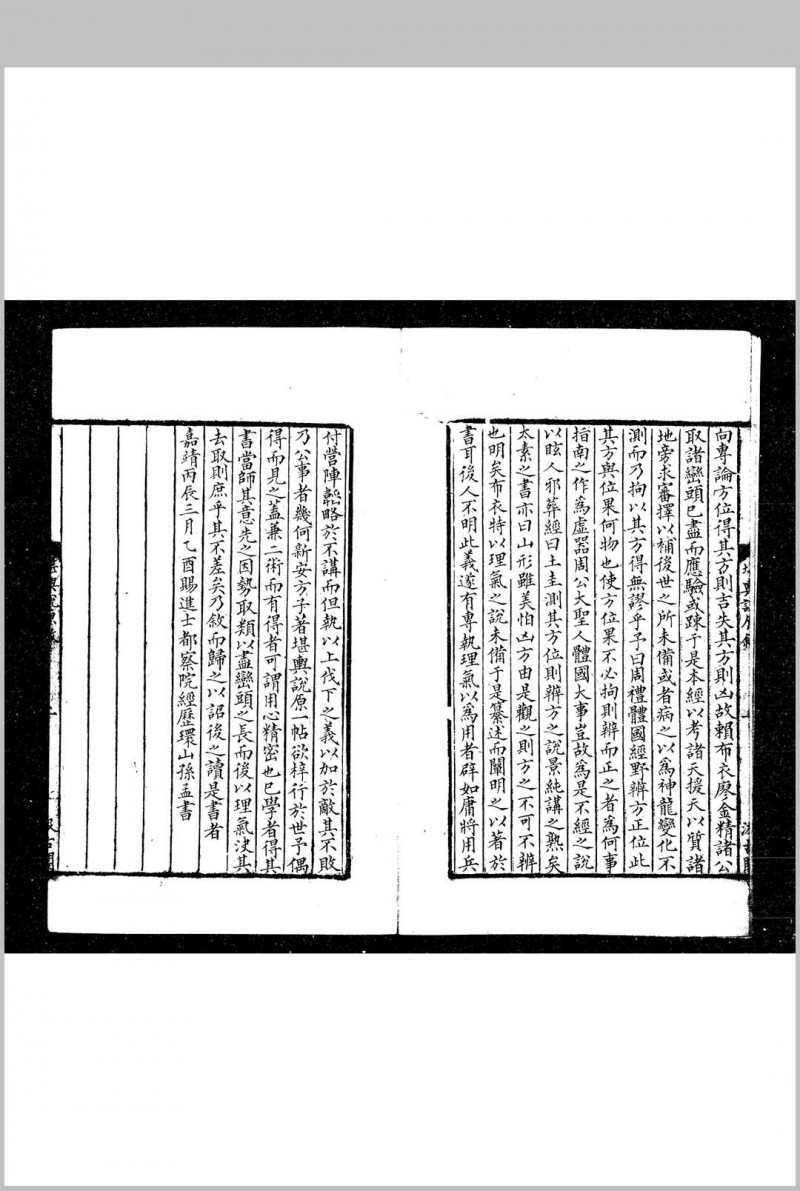 向專論方位得其方則吉失其方則凶故賴布衣廖金精諸公
取諸巒頭已盡而應驗或疎于是本經以考諸天援天以質諸
地旁求審擇以補後世之所未備或者病之以爲神龍變化不
測而乃拘以其方得無謬乎予曰周禮體國經野辨方正位此
其方與位果何物也使方位果不必拘則辨而正之者爲何事
指南之作爲虛器周公大聖人體國大事豈故爲是不經之說
以眩人邪葬經曰土圭測其方位則辨方之說景純講之熟矣
太素之書亦曰山形雖美怕凶方由是觀之則方之不可不辨
也明矣布衣特以理氣之說未備于是纂述而闡明之以著於
書耳後人不明此義遂有專執理氣以爲用者辟如庸將用兵
付營陣韜略於不講而但執以上伐下之義以加於敵其不敗
乃公事者幾何新安方子著堪輿說原一帖欲梓行於世予偶
得而見之蓋兼二術而有得者可謂用心精密也已學者得其
書當師其意先之因勢取類以盡巒頭之長而後以理氣決其
去取則庶乎其不差矣乃敘而歸之以詔後之讀是書者
嘉靖丙辰三月乙酉賜進士都察院經歷環山孫孟書